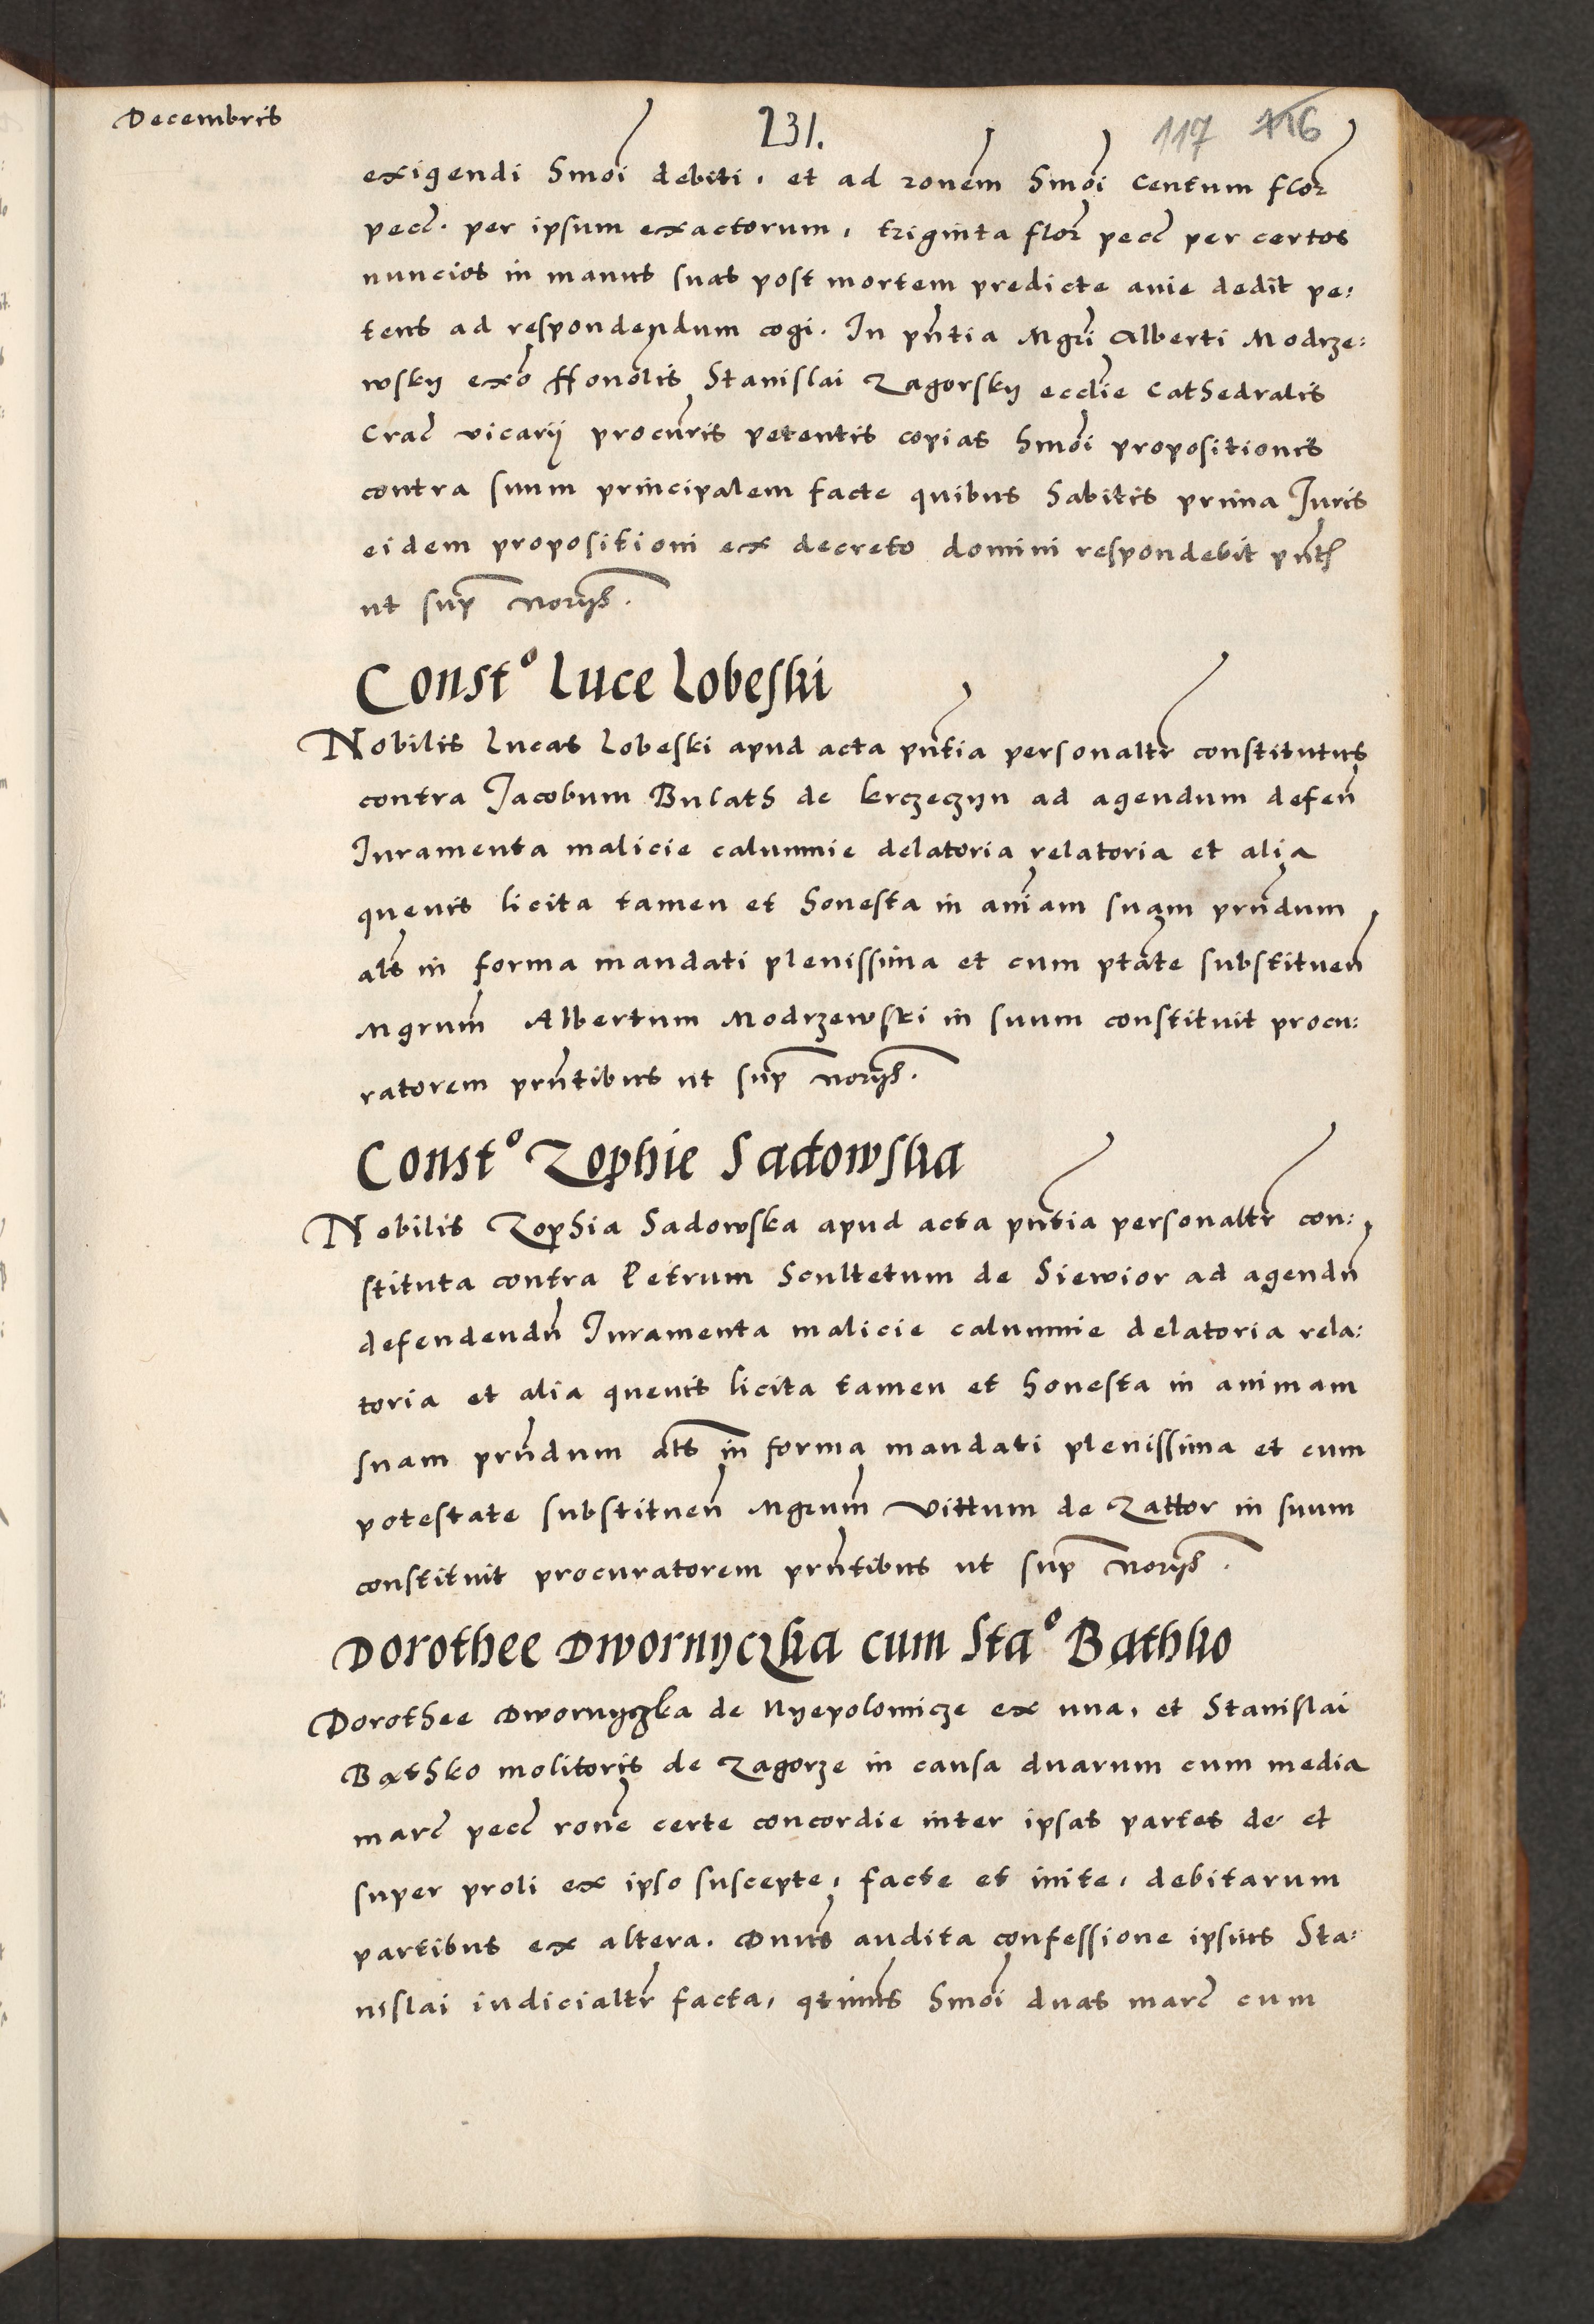 Decembris
231.
117 116
exigendi hmoi debiti, et ad ronem hmoi Centum flor
pecc. per ipsum exactorum, triginta flor pecc per certos
nuncios in manus suas post mortem predicte auie dedit pe:
tens ad respondendum cogi. In pntia Mgri Alberti Modrze:
wskÿ exo Honolis Stanislai Zagorskÿ ecclie Cathedralis
Crac vicarÿ procuris petentis copias hmoi propositionis
contra suum principalem facte quibus habitis prima Juris
eidem propositioni ex decreto domini respondebit pntib
ut sup noriis.
Const° Luce Lobeski
Nobilis Lucas Lobeski apud acta pntia personaltr constitutus
contra Jacobum Bulath de krczeczÿn ad agendum defen
Juramenta malicie calumnie delatoria relatoria et alia
quevis licita tamen et honesta in aniam suam prndum
als in forma mandati plenissima et cum ptate substituen
Mgrum Albertum Modrzewski in suum constituit procu:
ratorem prntibus ut sup noriis.
Const° Zophie Sadowska
Nobilis Zophia Sadowska apud acta pntia personaltr con:
stituta contra Petrum Scultetum de Siewior ad agendu
defendendu Juramenta malicie calumnie delatoria rela:
toria et alia quevis licita tamen et honesta in animam
suam prndum als in forma mandati plenissima et cum
potestate substituen Mgrum Vittum de Zattor in suum
constituit procuratorem prntibus ut sup noriis.
Dorothee Dwornÿczka cum Sta° Bathko
Dorothee Dwornÿczka de Nÿepolomicze ex una, et Stanislai
Bathko molitoris de Zagorze in causa duarum cum media
marc pecc rone certe concordie inter ipsas partes de et
super proli ex ipso suscepte, facte et inite, debitarum
partibus ex altera. Dnus audita confessione ipsius Sta:
nislai iudicialtr facta, qtinus hmoi duas marc cum